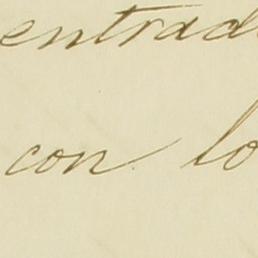 entrad
con lo